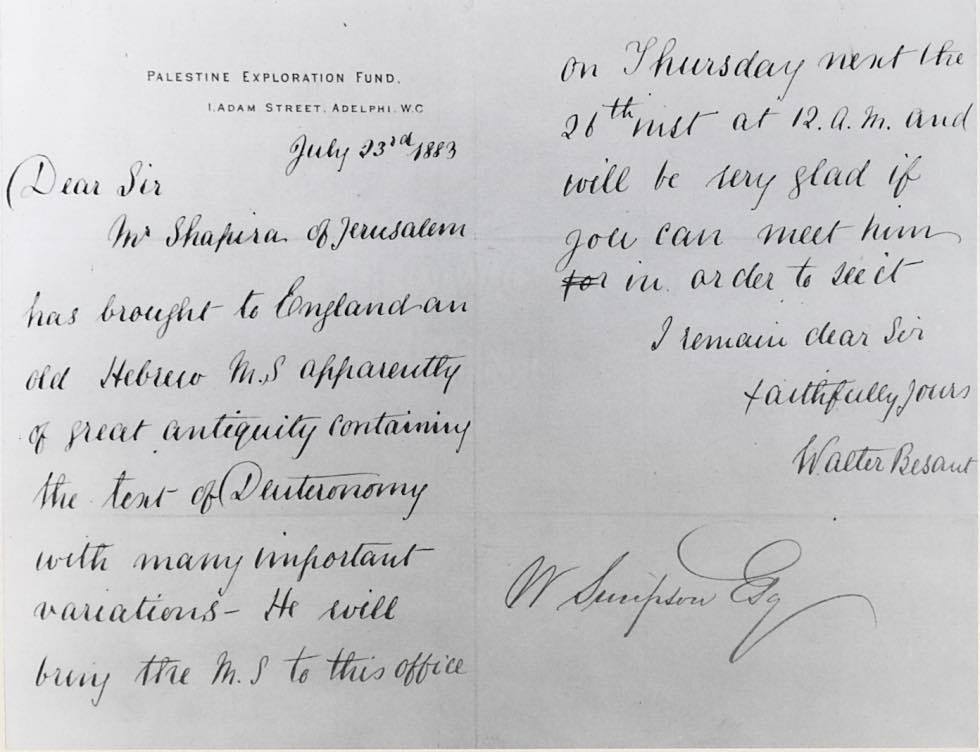 PALESTINE EXPLORATION FUND.
1. ADAM STREET, ADELPHI. W.C
July 23rd 1883
Dear Sir
Mr Shapira of Jerusalem
has brought to England an
old Hebrew M.S apparently
of great antiquity containing
the text of Deuteronomy
with many important
variations - He will
bring the M.S to this office
on Thursday next the
26th inst at 12. A. M. and
will be very glad if
you can meet him
for in order to see it
I remain dear Sir
faithfully yours
Walter Besant
W Simpson Esq